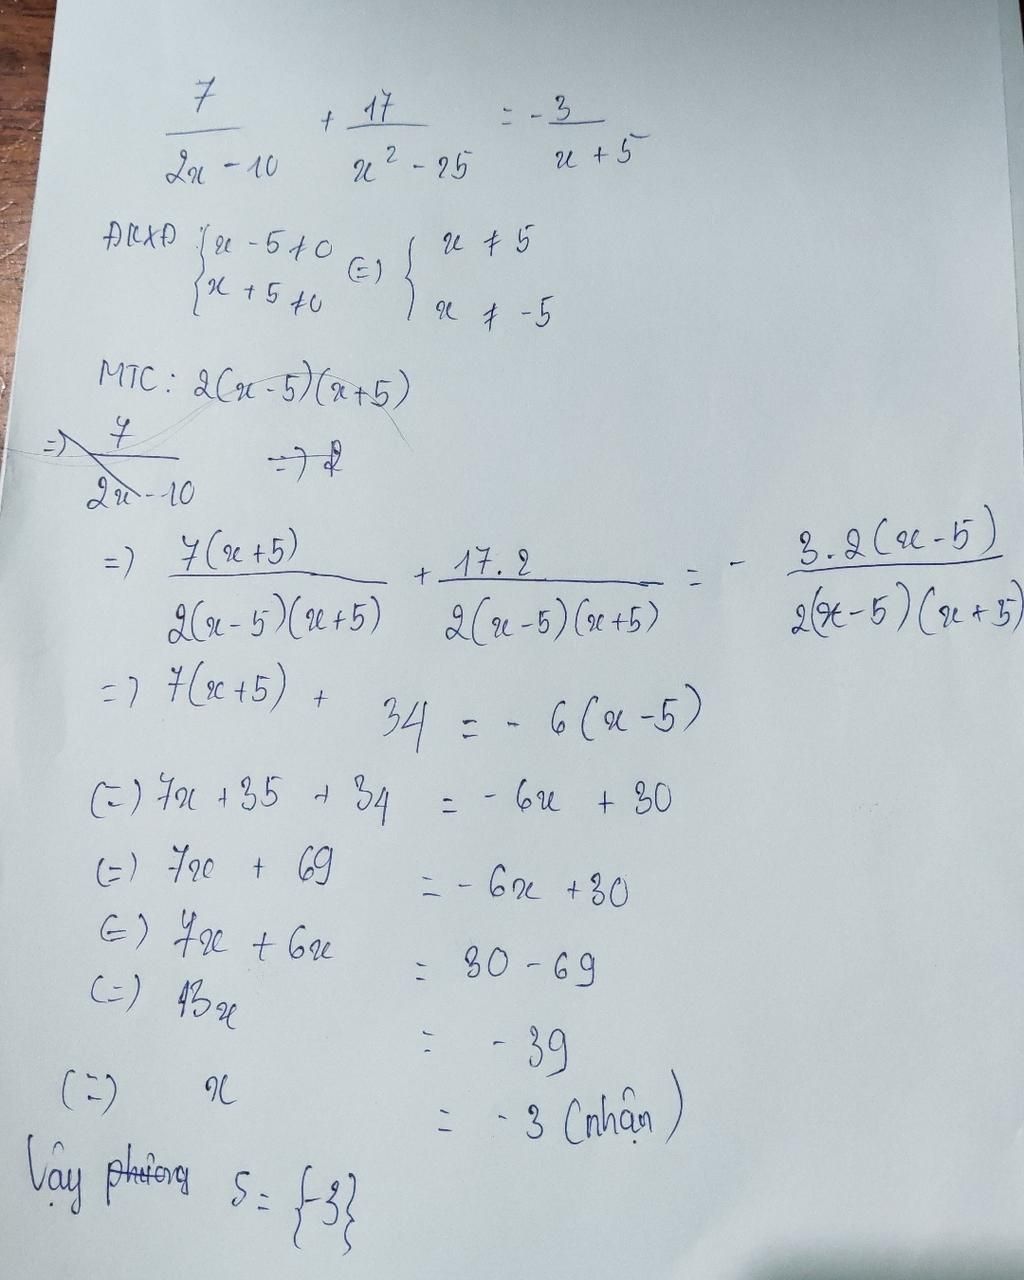 7/(2x - 10) + 17/(x² - 25) = - 3/(x + 5)
ĐKXĐ { x - 5 ≠ 0 (=) { x ≠ 5
{ x + 5 ≠ 0 { x ≠ -5
MTC : 2(x - 5)(x + 5)
=> 7/(2x - 10) => 2
=> 7(x + 5)/(2(x - 5)(x + 5)) + 17.2/(2(x - 5)(x + 5)) = - 3.2(x - 5)/(2(x - 5)(x + 5))
=> 7(x + 5) + 34 = - 6(x - 5)
(=) 7x + 35 + 34 = - 6x + 30
(=) 7x + 69 = - 6x + 30
(=) 7x + 6x = 30 - 69
(=) 13x = - 39
(=) x = - 3 (nhận)
Vậy phương S = {-3}